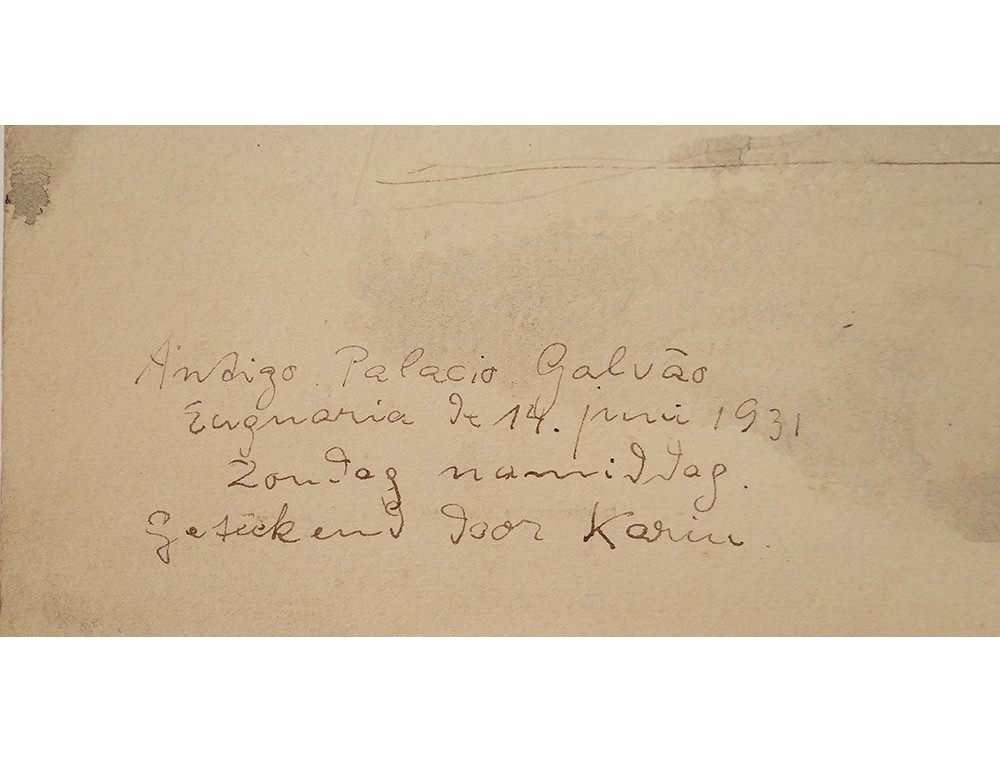 Antigo Palacio Galvão
de 14. juni 1931
Zondag namiddag.
Getekend door Karin.